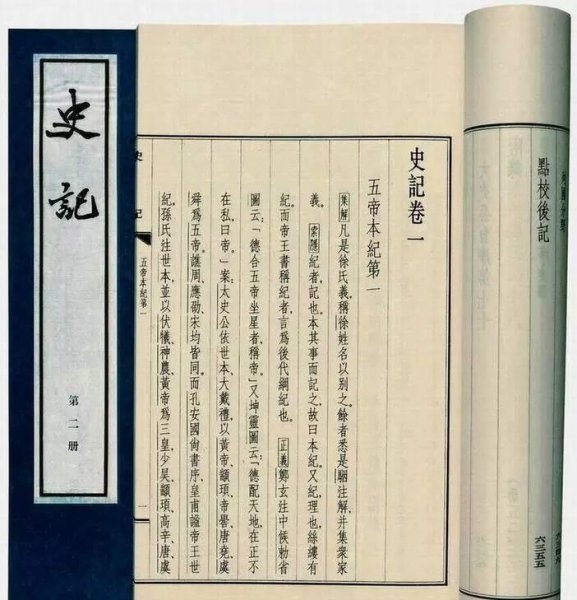 史記
第二册
史記卷一
五帝本紀第一
集解凡是徐氏義，稱徐姓名以别之。餘者悉是駰注解，并集衆家
義。索隱紀者，記也。本其事而記之，故曰本紀。又紀，理也，絲縷有
紀。而帝王書稱紀者，言爲後代綱紀也。正義鄭玄注中候勑省
圖云：「德合五帝坐星者，稱帝」。又坤靈圖云：「德配天地，在正不
在私，曰帝。」案：太史公依世本、大戴禮，以黄帝、顓頊、帝嚳、唐堯、虞
舜爲五帝。譙周、應劭、宋均皆同。而孔安國尚書序，皇甫謐帝王世
紀，孫氏注世本，並以伏犧、神農、黄帝爲三皇，少昊、顓頊、高辛、唐、虞
五帝本紀第一
一
點校後記
六三五五